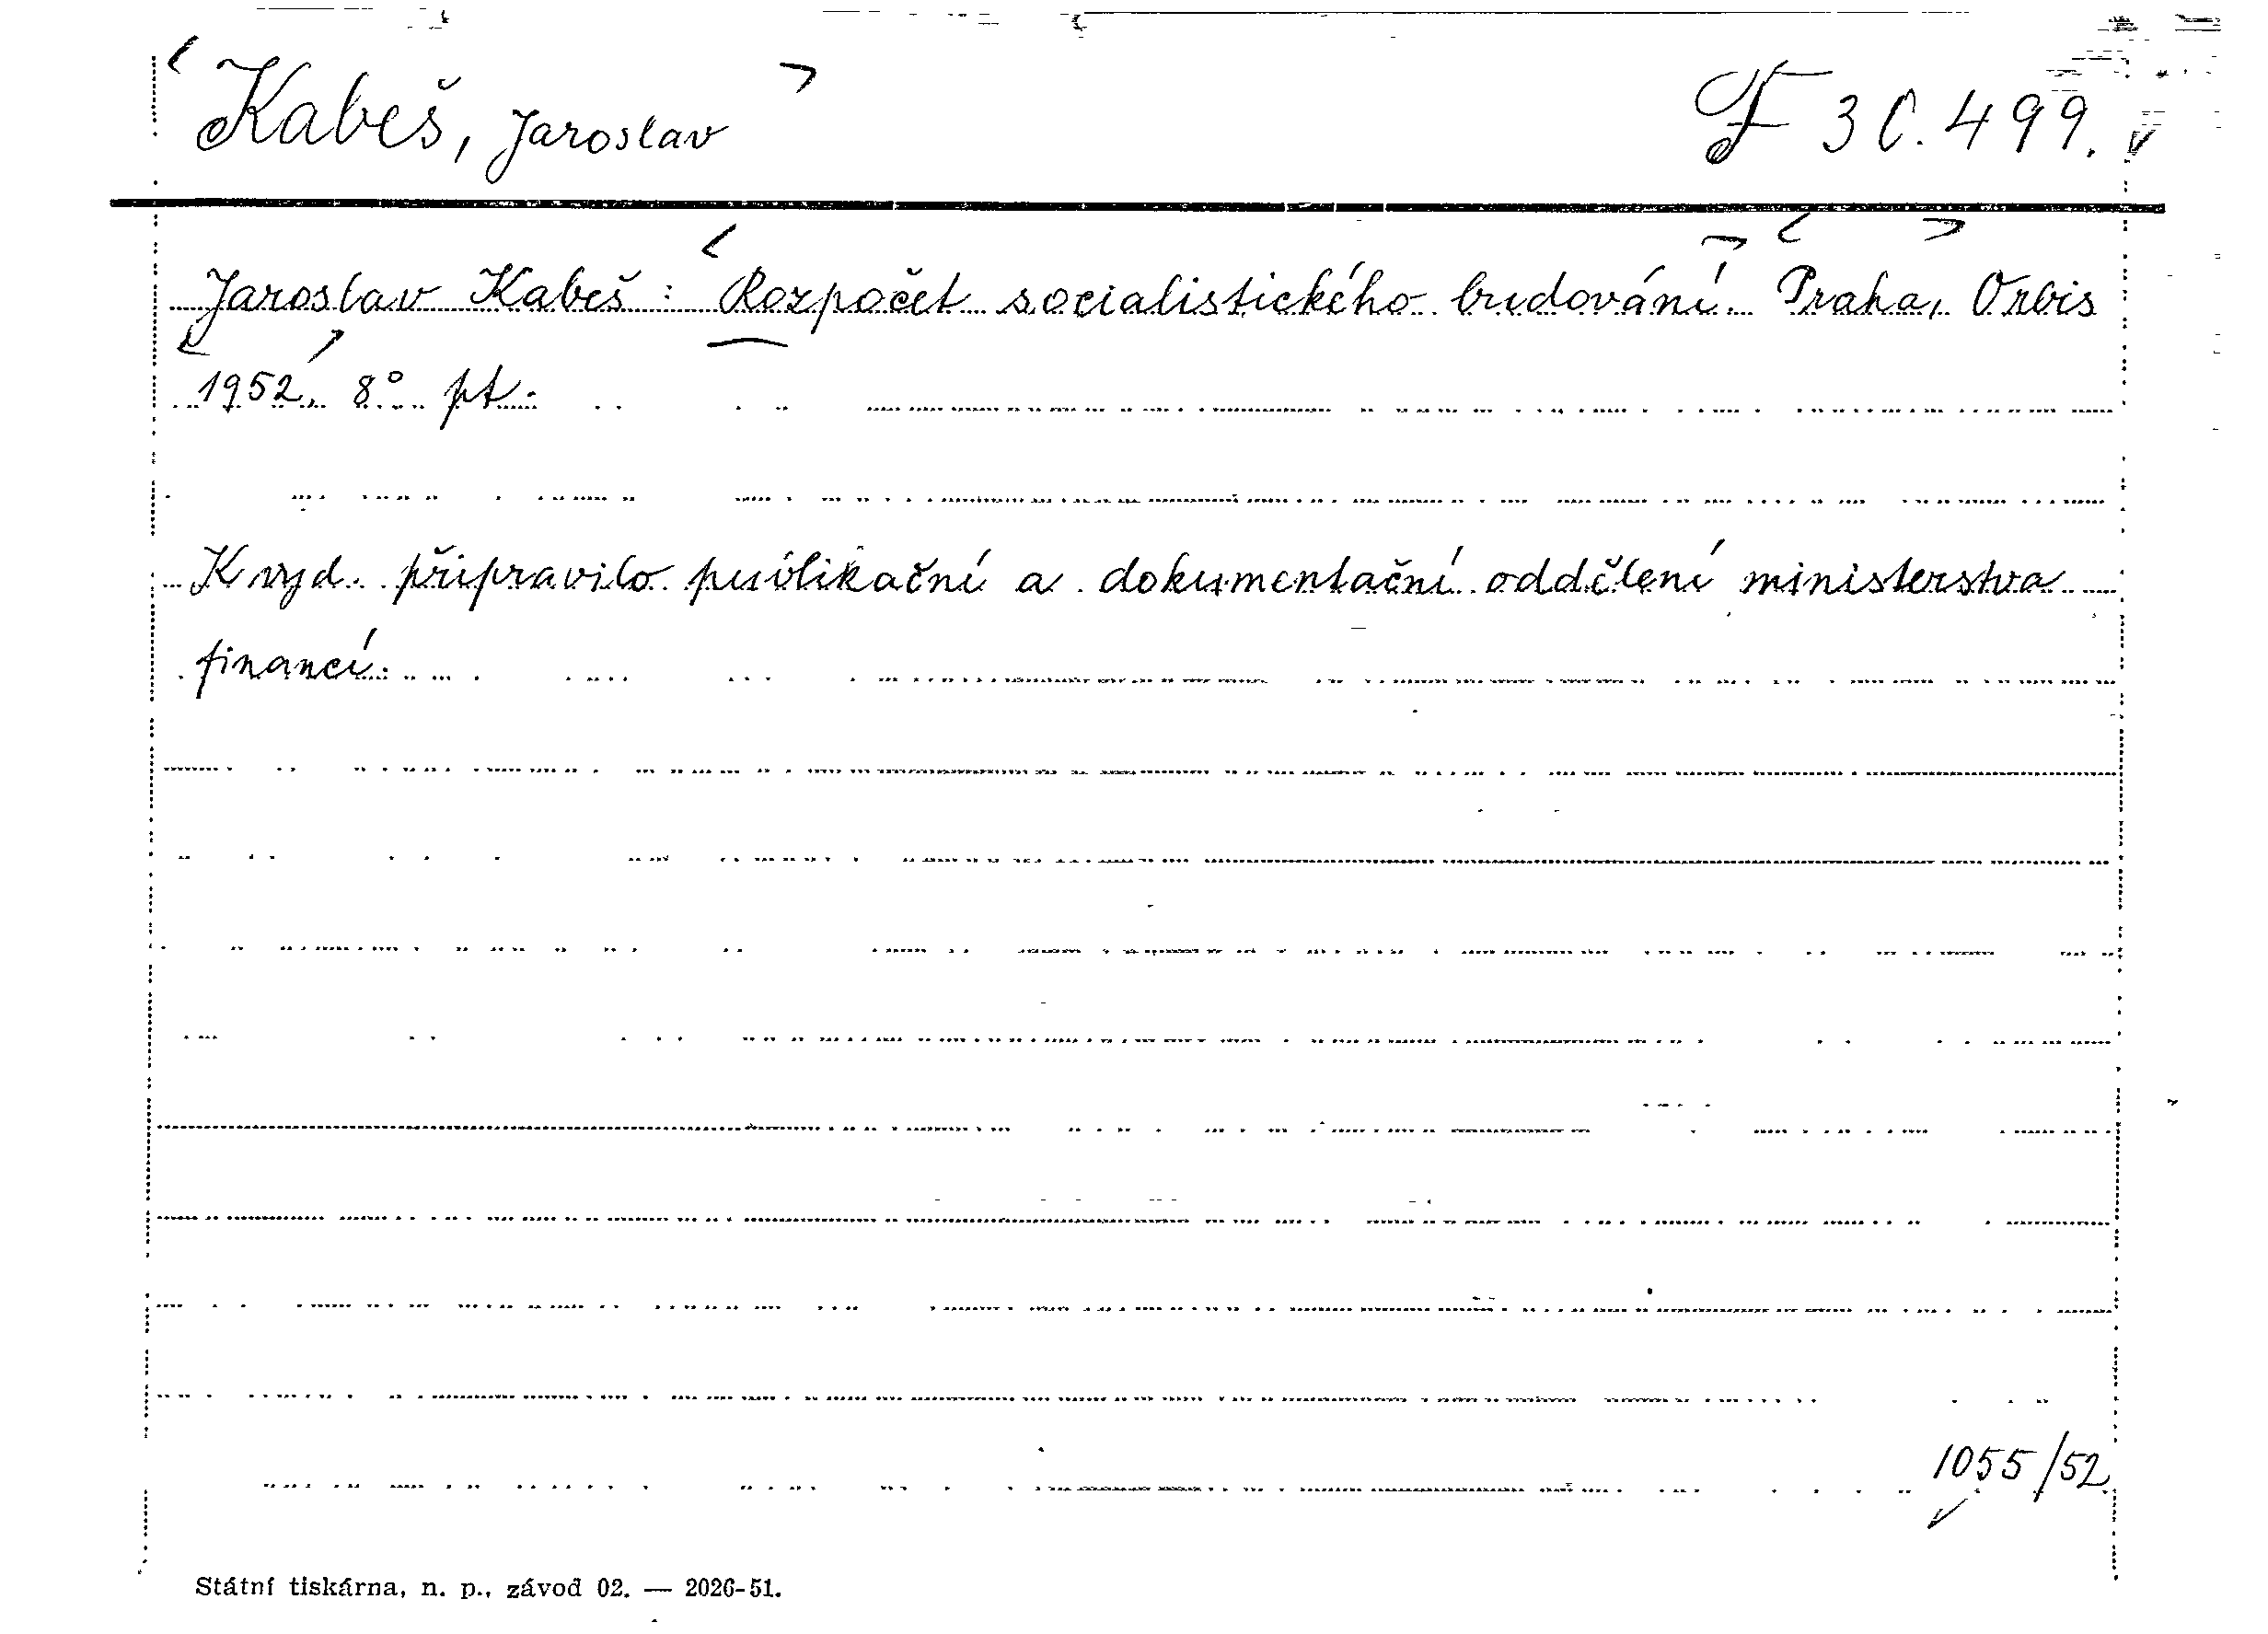 Kabeš, Jaroslav
F 30.499.
Jaroslav Kabeš: Rozpočet socialistického budování. Praha, Orbis
1952, 8° pt.
K vyd. připravilo publikační a dokumentační oddělení ministerstva
financí.
1055/52
Státní tiskárna, n. p., závod 02. — 2026-51.